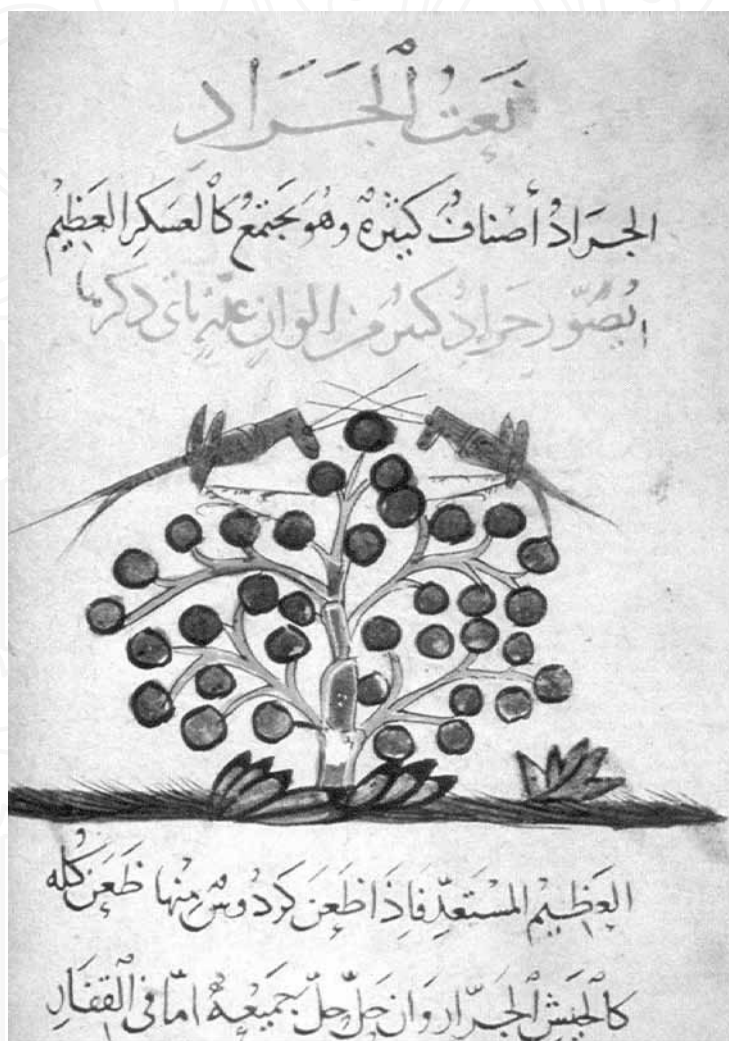 نَعتُ الجَرَاد
الجَرَادُ أصنافٌ كثيرةٌ وهو يجتمعُ كالعسكر العَظِيمْ
يُصَوّر جرادٌ كثيرٌ من الوانٍ علي ذكر
العَظِيمْ المستَعدِّ فاِذَا ظَعن كردوسٌ منها ظَعن كُله
كالجَيش الجَرّار وَان حَلَّ حلّ جميعهُ امّا في القفار